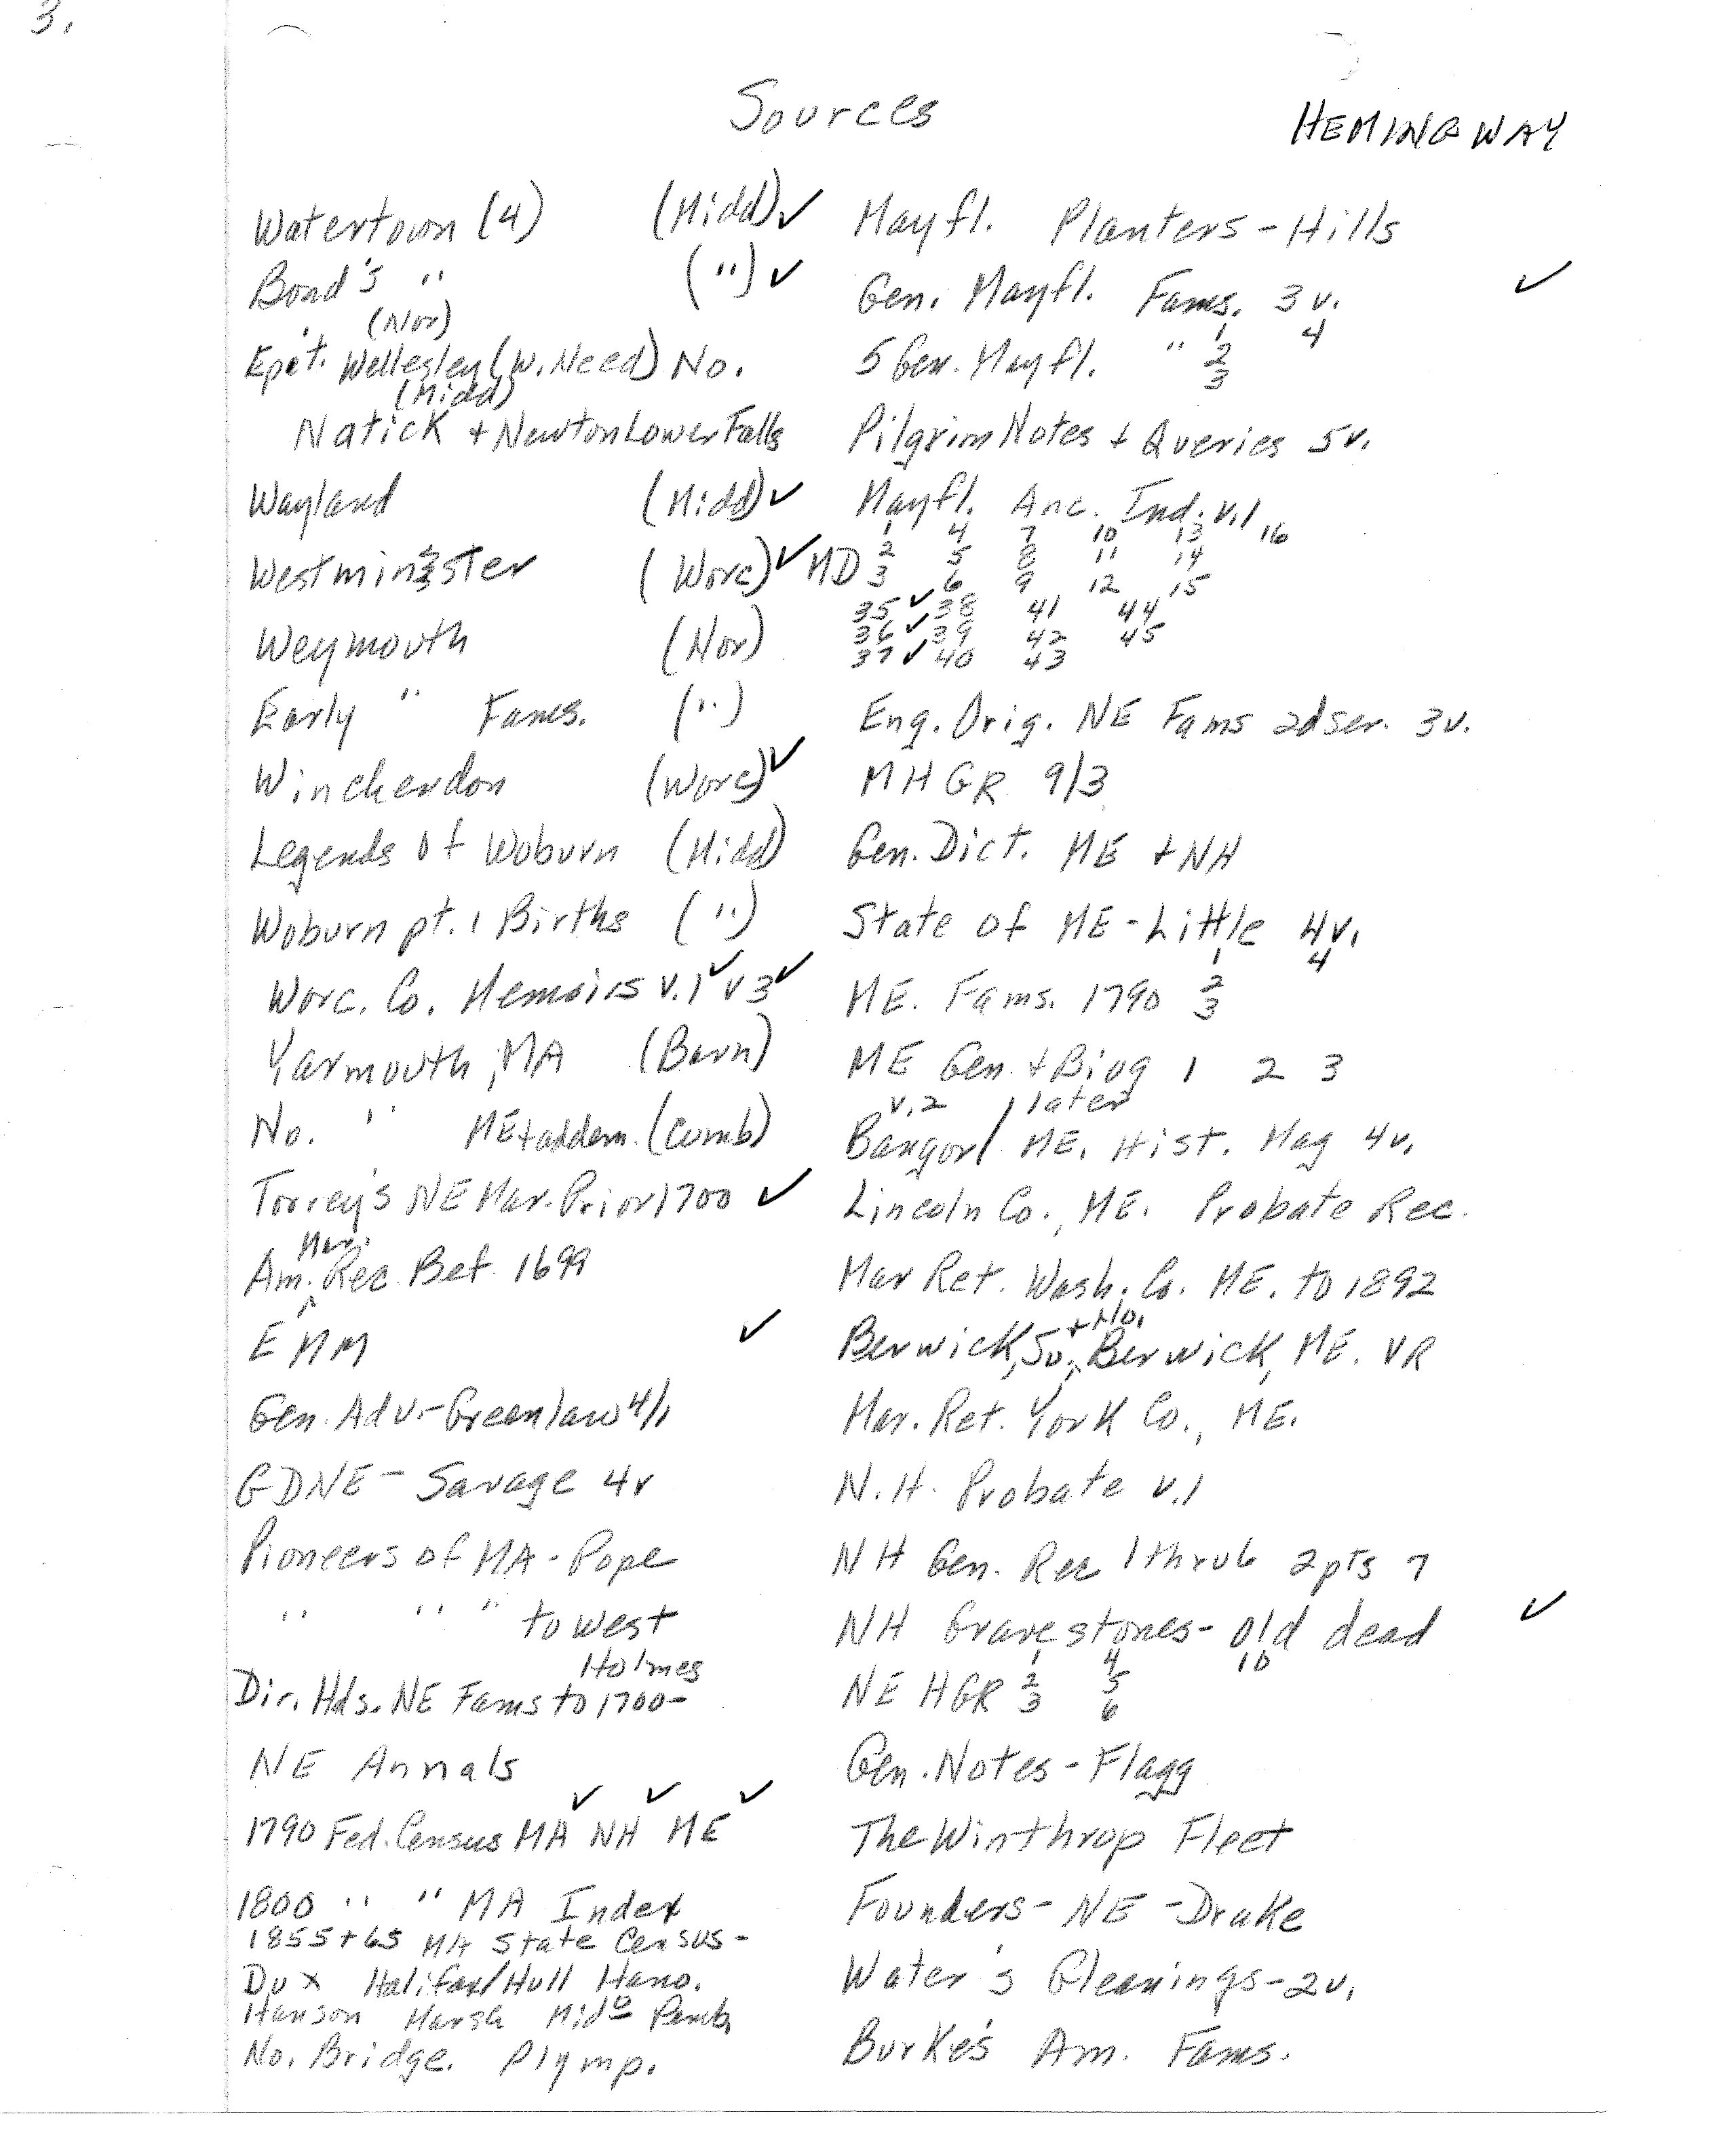 3.
Sources
HEMINGWAY
Watertown (4) (Midd) ✓
Bond's " (") ✓
(Nor)
Epit. Wellesley (W. Need) No.
(Midd)
Natick + Newton Lower Falls
Wayland (Midd) ✓
Westminster (Worc) ✓
Weymouth (Nor)
Early " Fams. (")
Winchendon (Worc) ✓
Legends of Woburn (Midd)
Woburn pt. 1 Births (")
Worc. Co. Memoirs v.1 ✓ v3 ✓
Yarmouth, MA (Barn)
No. " ME + addem. (Cumb)
Torrey's NE Mar. Prior 1700 ✓
Mar.
Am. ^ Rec. Bef. 1699
EMM ✓
Gen. Adv. - Greenlaw 4/1
GDNE - Savage 4v
Pioneers of MA - Pope
" " " to West
Holmes
Dir. Hds. NE Fams to 1700-
NE Annals
✓ ✓ ✓
1790 Fed. Census MA NH ME
1800 " " MA Index
1855 + 65 MA State Census -
Dux Halifax/Hull Hano.
Hanson Marsh Mido Pemb.
No. Bridge. Plymp.
Mayfl. Planters - Hills
Gen. Mayfl. Fams. 3v. ✓
1 4
5 Gen. Mayfl. " 2
3
Pilgrim Notes + Queries 5v.
Mayfl. Anc. Ind. v.1
1 4 7 10 13 16
MD 2 5 8 11 14
3 6 9 12 15
35 ✓ 38 41 44
36 ✓ 39 42 45
37 ✓ 40 43
Eng. Orig. NE Fams 2d ser. 3v.
MHGR 9/3
Gen. Dict. ME + NH
State of ME - Little 4v.
1 4
ME. Fams. 1790 2
3
ME Gen + Biog 1 2 3
v.2 | later
Bangor / ME. Hist. Mag 4v.
Lincoln Co., ME. Probate Rec.
Mar Ret. Wash. Co. ME. to 1892
+ No.
Berwick, So. ^ Berwick, ME. VR
Mar. Ret. York Co., ME.
N.H. Probate v.1
NH Gen. Rec 1 thru 6 2pts 7
NH Gravestones - Old dead ✓
1 4 10
NEHGR 2 5
3 6
Gen. Notes - Flagg
The Winthrop Fleet
Founders - NE - Drake
Water's Gleanings - 2v.
Burke's Am. Fams.